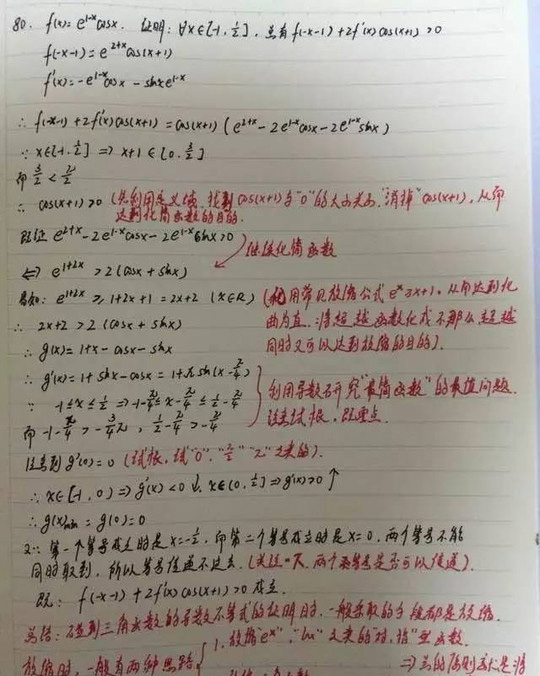 80. f(x)=e^{1-x}cosx. 证明: ∀x∈[-1,1/2], 总有 f(-x-1)+2f'(x)cos(x+1)>0
f(-x-1)=e^{2+x}cos(x+1)
f'(x)=-e^{1-x}cosx-sinxe^{1-x}
∴ f(-x-1)+2f'(x)cos(x+1)=cos(x+1)(e^{2+x}-2e^{1-x}cosx-2e^{1-x}sinx)
∵ x∈[-1,1/2] ⇒ x+1∈[0,3/2]
而 3/2<π/2
∴ cos(x+1)>0 (先利用定义域, 找到cos(x+1)与"0"的大小关系,"消掉"cos(x+1), 从而
达到化简函数的目的.
即证 e^{2+x}-2e^{1-x}cosx-2e^{1-x}sinx>0
继续化简函数
⇔ e^{1+2x}>2(cosx+sinx)
易知: e^{1+2x}≥1+2x+1=2x+2 (x∈R) (利用常见放缩公式e^x≥x+1, 从而达到化
曲为直. 将超越函数化成不那么超越
同时又可以达到放缩的目的).
∴ 2x+2>2(cosx+sinx)
∴ g(x)=1+x-cosx-sinx
∴ g'(x)=1+sinx-cosx=1+√2sin(x-π/4)
∵ -1≤x≤1/2 ⇒ -1-π/4≤x-π/4≤1/2-π/4
而 -1-π/4>-3/4π, 1/2-π/4>-π/4
利用导数研究"最简函数"的最值问题.
注意试根, 取点.
注意到g'(0)=0 (试根, 试"0""π/2""π"之类的).
∴ x∈[-1,0)⇒g'(x)<0↓, x∈(0,1/2]⇒g'(x)>0↑
∴ g(x)min=g(0)=0
又∵ 第一个等号成立时是x=-1/2, 而第二个等号成立时是x=0, 两个等号不能
同时取到, 所以等号传递不过去. (关注一下, 两个等号是否可以传递).
故: f(-x-1)+2f'(x)cos(x+1)>0 成立.
总结: 碰到三角函数的导数不等式的证明时, 一般采取的手段都是放缩.
放缩时, 一般有两种思路 1. 放缩"e^x","lnx"之类的对、指函数.
⇒总的原则就是将